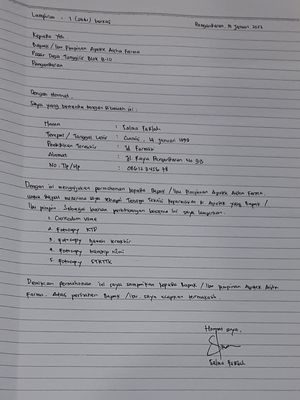 Lampiran : 1 (satu) berkas
Pangandaran, 16 Januari 2022
Kepada Yth.
Bapak / Ibu Pimpinan Apotek Aisha Farma
Pasar Desa Blok B-10
Pangandaran
Dengan Hormat,
Saya yang bertanda tangan dibawah ini :
Nama :
Tempat / Tanggal Lahir : Ciamis, 14 Januari 1999
Pendidikan Terakhir : D3 Farmasi
Alamat : Jl. Raya Pangandaran No 313
NO. Tlp / Hp :
Dengan ini mengajukan permohonan kepada Bapak / Ibu Pimpinan Apotek Aisha Farma,
untuk dapat menerima saya Sebagai Tenaga Teknis Kefarmasian di Apotek yang Bapak /
Ibu pimpin. Sebagai bahan pertimbangan bersama ini saya lampirkan :
1. Curriculum Vitae
2. Fotocopy KTP
3. Fotocopy Ijazah terakhir
4. Fotocopy transkip nilai
5. Fotocopy STRTTK
Demikian permohonan ini saya sampaikan kepada Bapak / Ibu Pimpinan Apotek Aisha
Farma. Atas perhatian Bapak / Ibu, saya ucapkan terimakasih.
Hormat saya,